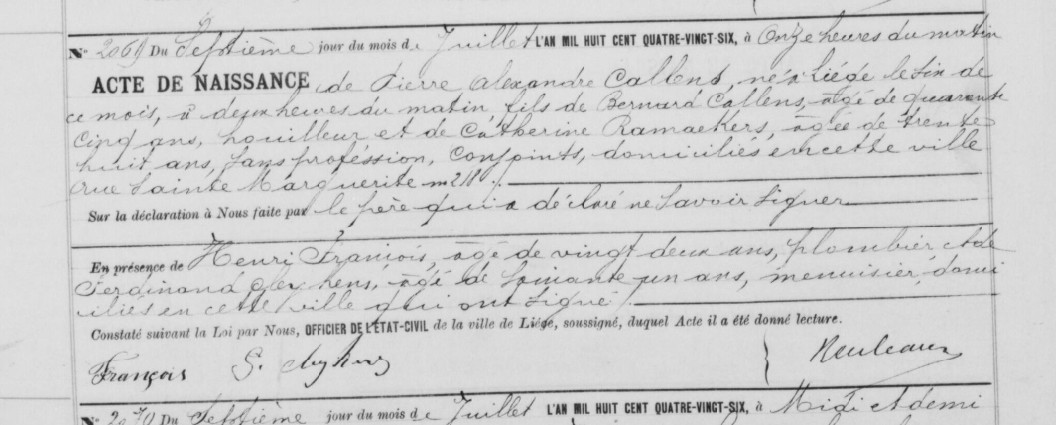 N° 2069 Du Septième jour du mois de Juillet L'AN MIL HUIT CENT QUATRE-VINGT-SIX, à Onze heures du matin
ACTE DE NAISSANCE de Pierre Alexandre Callens, né à Liége le six de
ce mois, à deux heures du matin fils de Bernard Callens, âgé de quarante
cinq ans, houilleur et de Catherine Ramaekers, âgée de trente
huit ans, sans profession, conjoints, domiciliés en cette ville
rue Sainte Marguerite
Sur la déclaration à Nous faite par le père qui a déclaré ne savoir signer
En présence de Henri François, âgé de vingt deux ans, plombier et de
Ferdinand âgé de soixante un ans, menuisier, domi
ciliés en cette ville qui ont signé
Constaté suivant la Loi par Nous, OFFICIER DE L'ÉTAT-CIVIL de la ville de Liége, soussigné, duquel Acte il a été donné lecture.
François
N° 2070 Du Septième jour du mois de Juillet L'AN MIL HUIT CENT QUATRE-VINGT-SIX, à Midi et demi